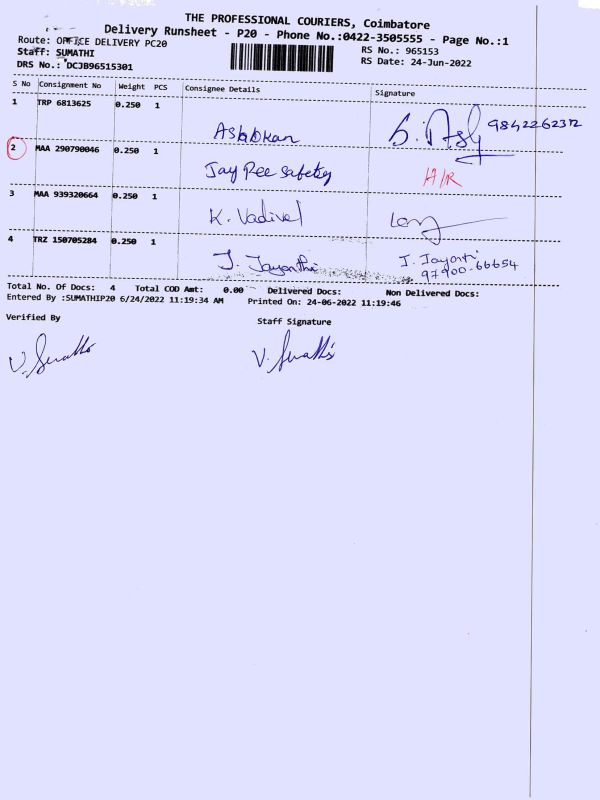 THE PROFESSIONAL COURIERS, Coimbatore
Delivery Runsheet - P20 - Phone No.:0422-3505555 - Page No.:1
Route: OFFICE DELIVERY PC20
RS No.: 965153
Staff: SUMATHI
RS Date: 24-Jun-2022
DRS No.: DCJB96515301
S No Consignment No Weight PCS Consignee Details Signature
1 TRP 6813625 0.250 1
Ashokan 9842262372
2 MAA 290790046 0.250 1
Jay Pee Safety H/R
3 MAA 939320664 0.250 1
K. Vadivel
4 TRZ 150705284 0.250 1
J. Jayanthi J. Jayanti
97900-66654
Total No. Of Docs: 4 Total COD Amt: 0.00 Delivered Docs: Non Delivered Docs:
Entered By :SUMATHIP20 6/24/2022 11:19:34 AM Printed On: 24-06-2022 11:19:46
Verified By Staff Signature